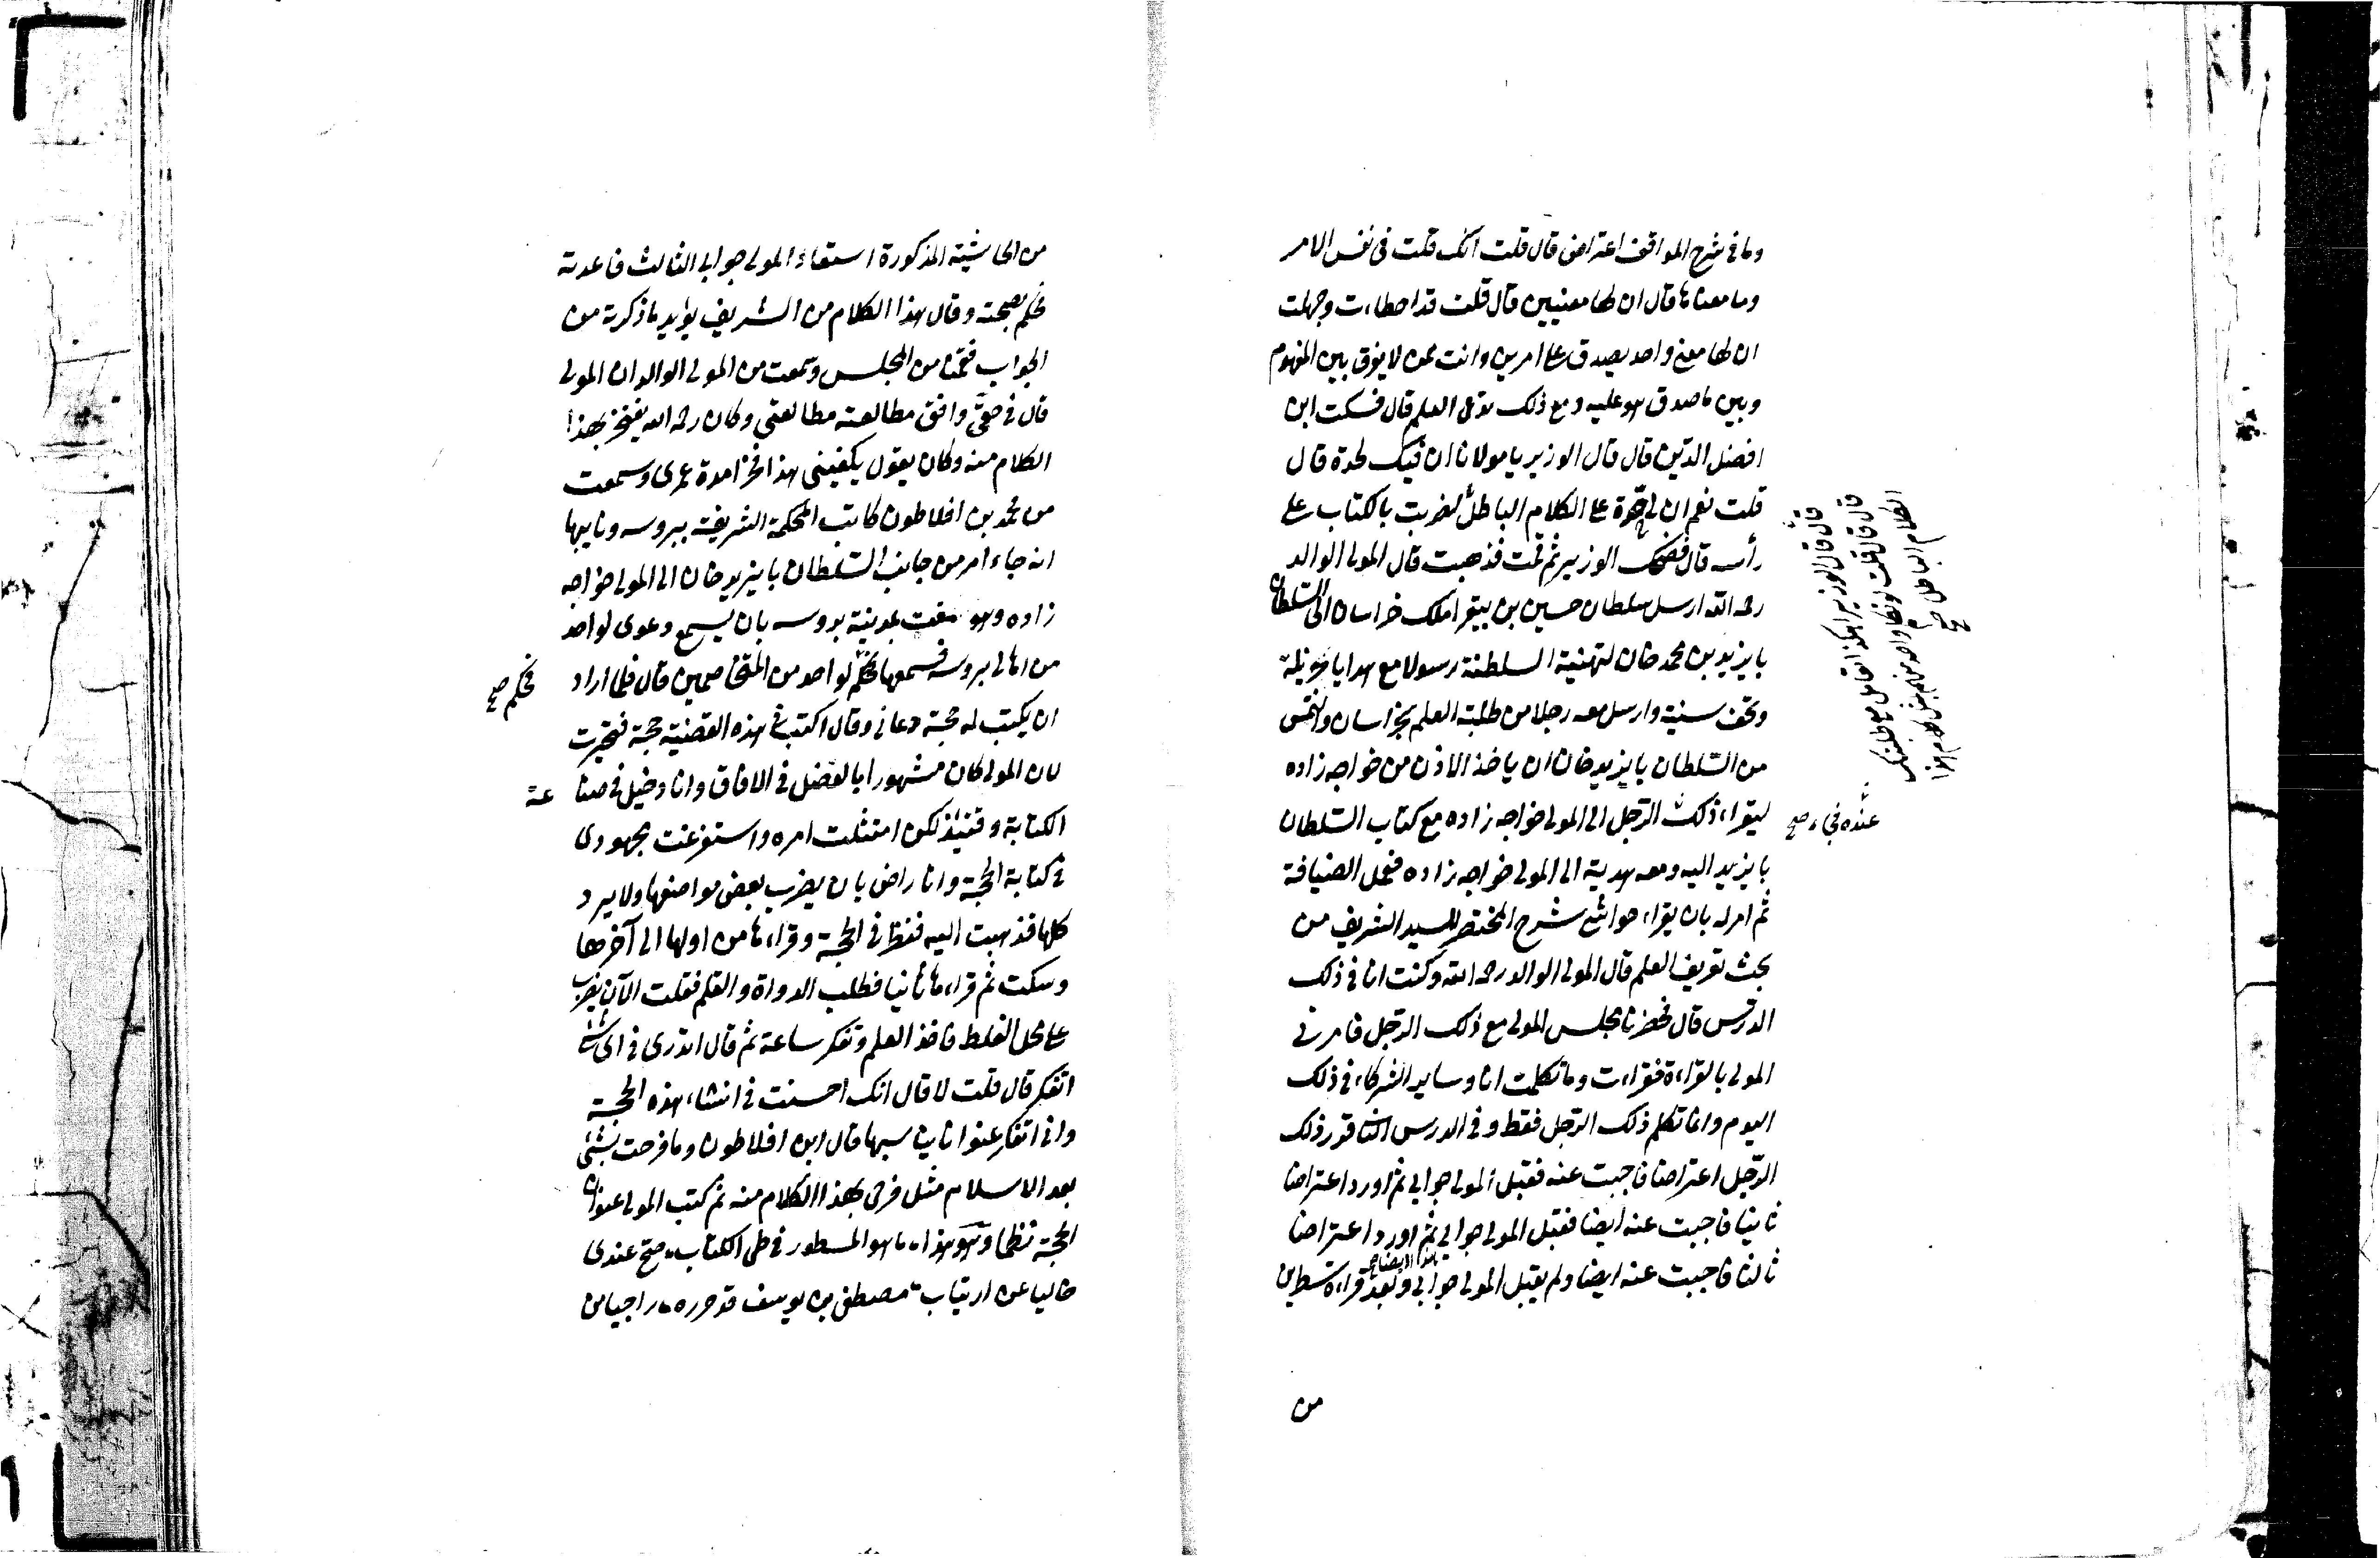 وما فى شرح المواقف اعتراض قال قلت انك قلت فى نفس الامر
وما معناها قال ان لها معنيين قال قلت قد اخطاءت وجهلت
ان لها معنى واحد يصدق على امرين وانت ممن لا يفرق بين المفهوم
وبين ما صدق هو عليه ومع ذلك تدعى العلم قال فسكت ابن
افضل الدين قال قال الوزير يا مولانا ان فيك لحدة قال
قلت نعم ان لى حدة على الكلام الباطل لضربت بالكتاب على
رأسه قال فضحك الوزير ثم قمت فذهبت قال المولى الوالد
رحمه الله ارسل سلطان حسين بن بيقرا ملك خراسان الى السلطان
بايزيد بن محمد خان لتهنية السلطنة رسولا مع هدايا جزيلة
وتحف سنية وارسل معه رجلا من طلبة العلم بخراسان والتمس
من السلطان بايزيد خان ان ياخذ الاذن من خواجه زاده
ليقراء ذلك الرجل الى المولى خواجه زاده مع كتاب السلطان
بايزيد اليه ومعه هدية الى المولى خواجه زاده فعمل الضيافة
ثم امر له بان يقراء حواشى شرح المختصر للسيد الشريف من
بحث تعريف العلم قال المولى الوالد رحمه الله وكنت انا فى ذلك
الدرس قال فحضرنا مجلس المولى مع ذلك الرجل فامرنى
المولى بالقراءة فقراءت وما تكلمت انا وساير الشركاء فى ذلك
اليوم وانما تكلم ذلك الرجل فقط وفى الدرس الثانى قرر ذلك
الرجل اعتراضا فاجبت عنه فقبل المولى جوابى ثم اورد اعتراضا
ثانيا فاجبت عنه ايضا فقبل المولى جوابى ثم اورد اعتراضا
ثالثا فاجبت عنه ايضا ولم يقبل المولى جوابى وبعد قراءة سطرين
قال قال الوزير
قال قال قلت
الكلام الباطل صح
عنده فجاء صح
من
من الحاشية المذكورة استعاد المولى جوابى الثالث فاعدته
فحكم بصحته وقال هذا الكلام من الشريف يؤيد ما ذكرته من
الجواب فقمنا من المجلس وسمعت من المولى الوالد ان المولى
قال فى حقى وافق مطالعته مطالعتى وكان رحمه الله يفتخر بهذا
الكلام منه وكان يقول يكفينى هذا فخرا مدة عمرى وسمعت
من محمد بن افلاطون كاتب المحكمة الشريفة ببروسه ونايبها
انه جاء امر من جانب السلطان بايزيد خان الى المولى خواجه
زاده وهو مفت بمدينة بروسه بان يسمع دعوى لواحد
من اهالى بروسه فسمعها فحكم لواحد من المتخاصمين قال فلما اراد
فحكم صح
ان يكتب له حجة دعانى وقال اكتب فى هذه القضية حجة فتحيرت
لان المولى كان مشهورا بالفضل فى الافاق وانا دخيل فى صناعة
الكتابة وقتئذ لكن امتثلت امره واستفرغت مجهودى
فى كتابة الحجة وانا راض بان يضرب بعض مواضعها ولا يرد
كلها فذهبت اليه فنظر فى الحجة وقراءها من اولها الى آخرها
وسكت ثم قراءها ثانيا فطلب الدواة والقلم فقلت الآن يضرب
على محل الغلط فاخذ القلم وتفكر ساعة ثم قال اتدرى فى اى شئ
اتفكر قال قلت لا قال انك احسنت فى انشاء هذه الحجة
وانى اتفكر عنوانا يناسبها قال ابن افلاطون وما فرحت بشئ
بعد الاسلام مثل فرحى بهذا الكلام منه ثم كتب المولى عنوان
الحجة نظما وهو هذا ما هو المسطور فى طى الكتاب صح عندى
خاليا عن ارتياب مصطفى بن يوسف قد حرره راجيا من